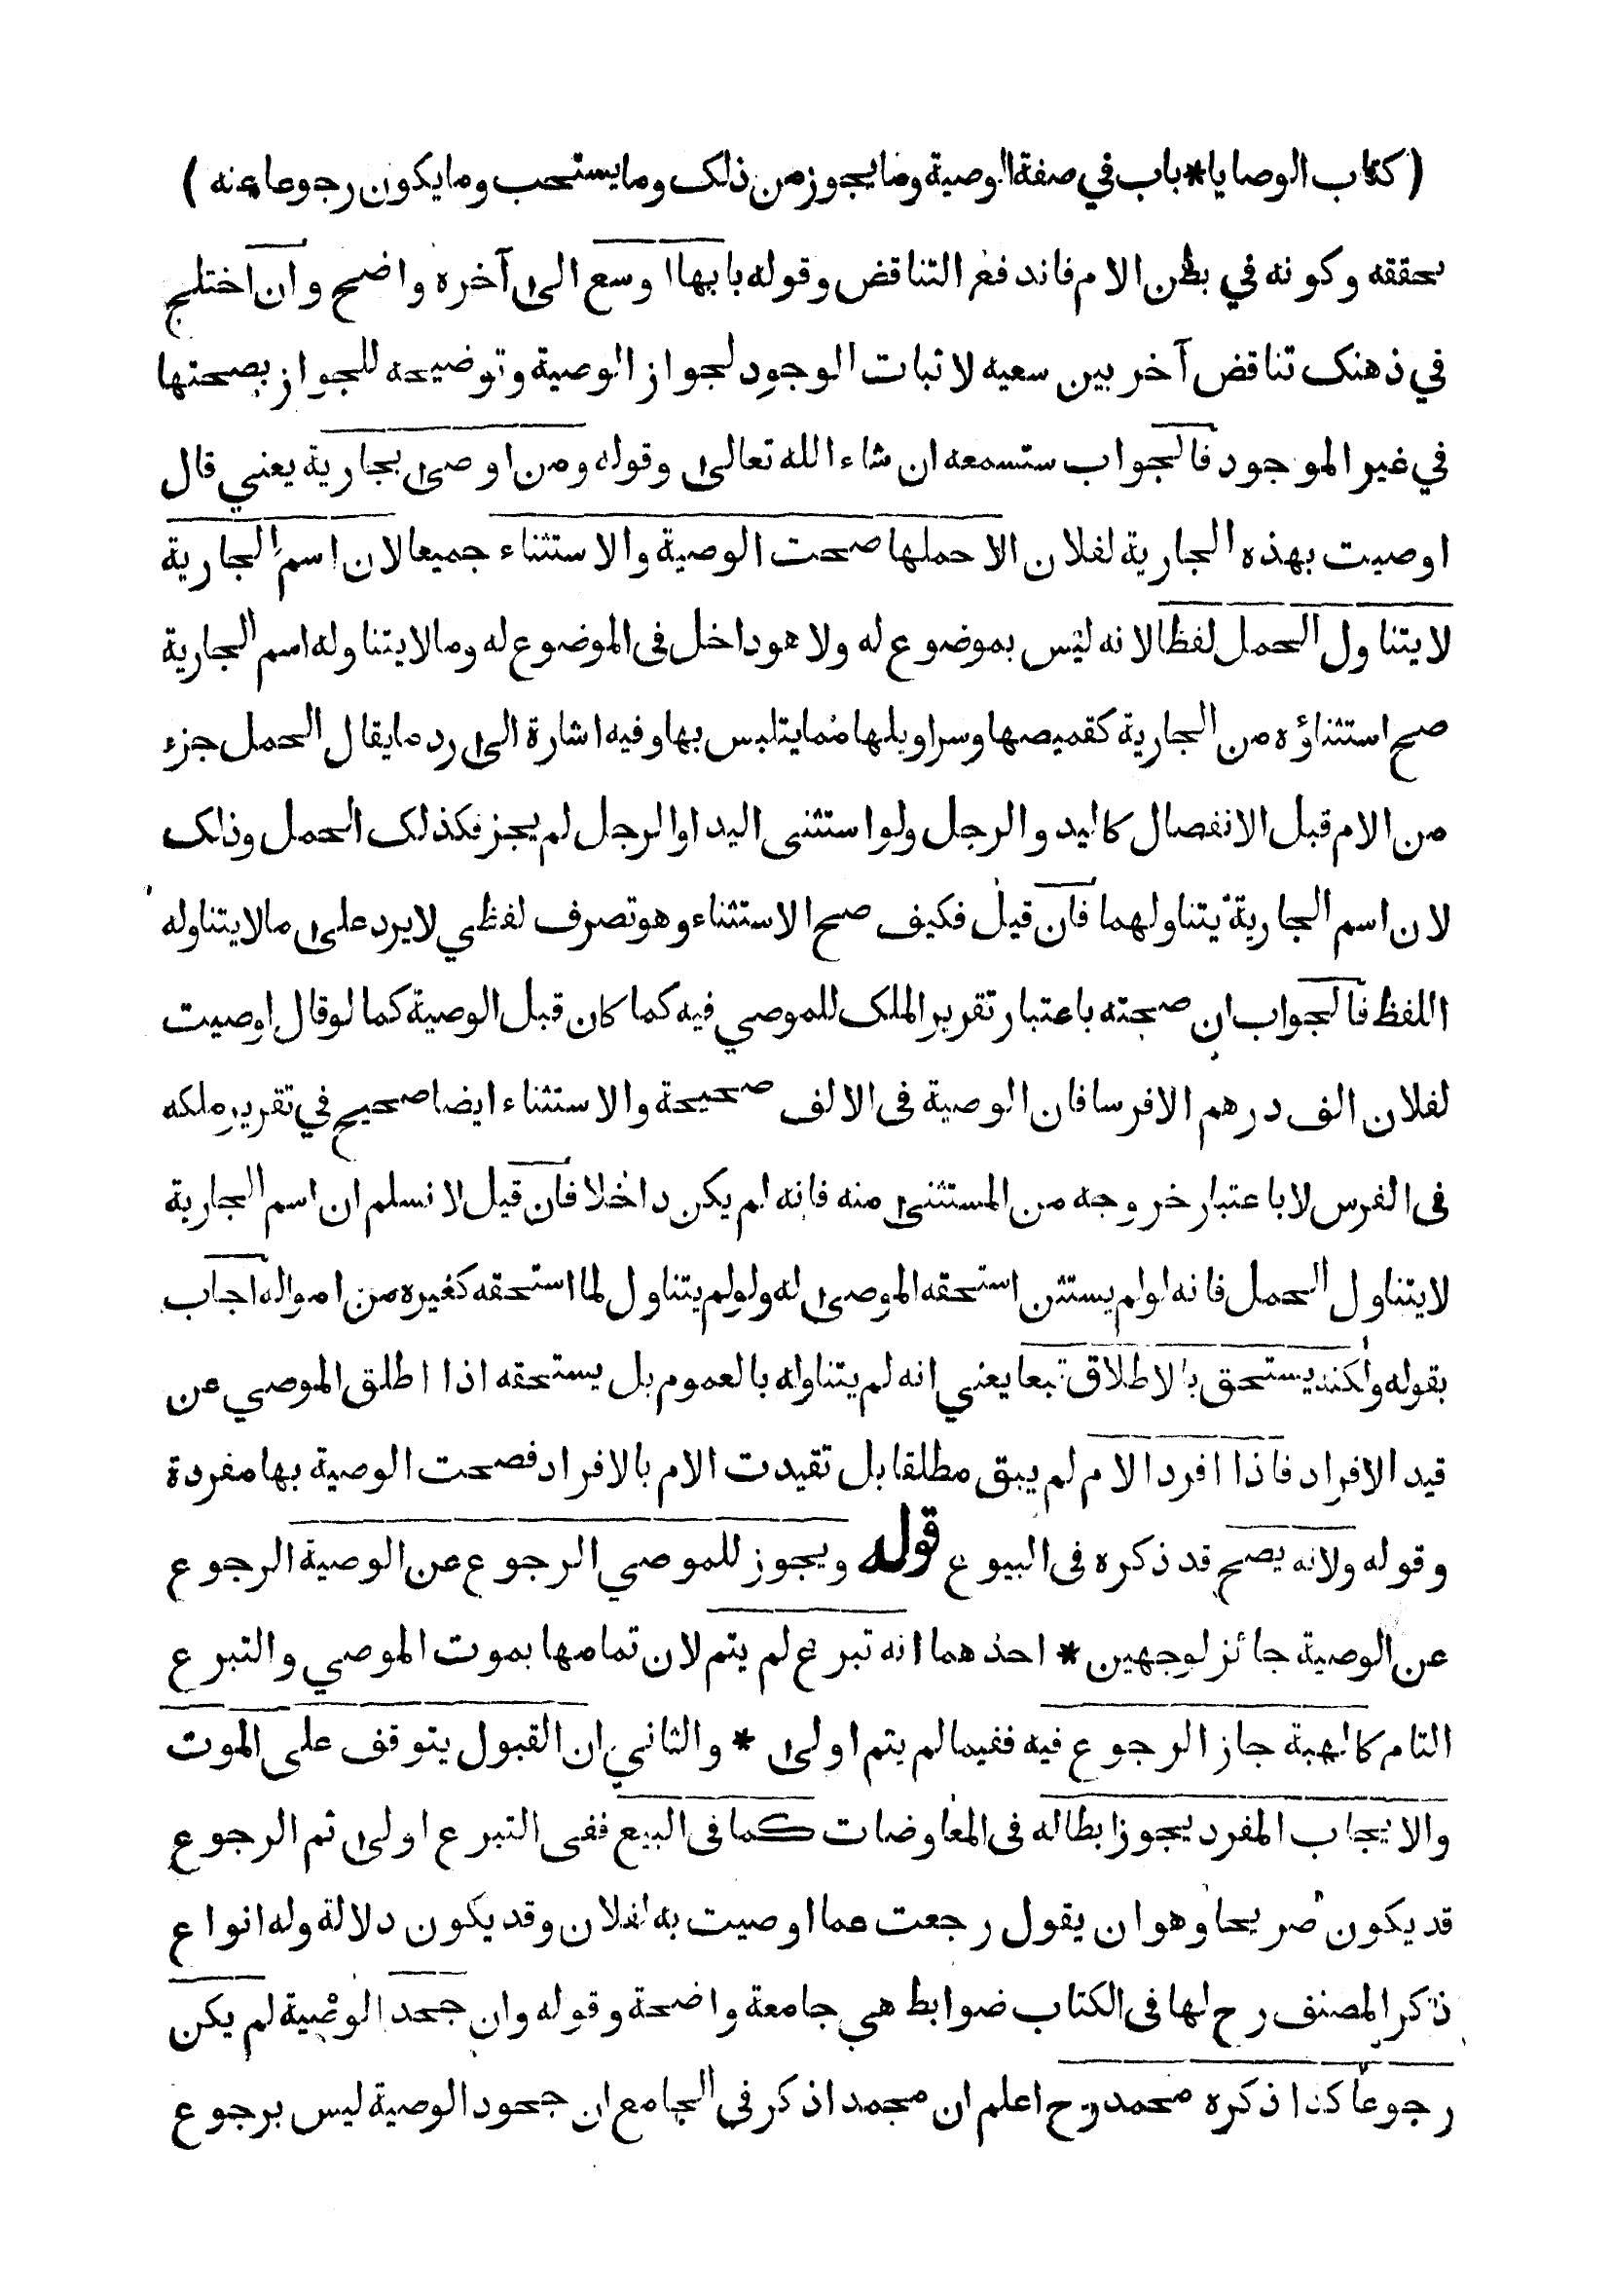 ( كتاب الوصايا * باب في صفة الوصية وما يجوز من ذلك وما يستحب وما يكون رجوعا عنه )
تحققه وكونه في بطن الام فاندفع التناقض وقوله بابها اوسع الى آخره واضح وان اختلج
في ذهنك تناقض آخر بين سعيه لاثبات الوجود لجواز الوصية وتوضيحه للجواز بصحتها
في غير الموجود فالجواب ستسمعه ان شاء الله تعالى وقوله ومن اوصى بجارية يعني قال
اوصيت بهذه الجارية لفلان الا حملها صحت الوصية والاستثناء جميعا لان اسم الجارية
لا يتناول الحمل لفظا لانه ليس بموضوع له ولا هو داخل فى الموضوع له وما لا يتناوله اسم الجارية
صح استثناؤه من الجارية كقميصها وسراويلها مما يتلبس بها وفيه اشارة الى رد ما يقال الحمل جزء
من الام قبل الانفصال كاليد والرجل ولو استثنى اليد او الرجل لم يجز فكذلك الحمل وذلك
لان اسم الجارية يتناولهما فان قيل فكيف صح الاستثناء وهو تصرف لفظي لا يرد على ما لا يتناوله
اللفظ فالجواب ان صحته باعتبار تقرير الملك للموصي فيه كما كان قبل الوصية كما لو قال اوصيت
لفلان الف درهم الا فرسا فان الوصية فى الالف صحيحة والاستثناء ايضا صحيح في تقرير ملكه
فى الفرس لا باعتبار خروجه من المستثنى منه فانه لم يكن داخلا فان قيل لا نسلم ان اسم الجارية
لا يتناول الحمل فانه لو لم يستثن استحقه الموصى له ولو لم يتناول لما استحقه كغيره من امواله اجاب
بقوله ولكنه يستحق بالاطلاق تبعا يعني انه لم يتناوله بالعموم بل يستحقه اذا اطلق الموصي عن
قيد الافراد فاذا افرد الام لم يبق مطلقا بل تقيدت الام بالافراد فصحت الوصية بها مفردة
وقوله ولانه يصح قد ذكره فى البيوع قوله ويجوز للموصي الرجوع عن الوصية الرجوع
عن الوصية جائز لوجهين * احدهما انه تبرع لم يتم لان تمامها بموت الموصي والتبرع
التام كالهبة جاز الرجوع فيه ففيما لم يتم اولى * والثاني ان القبول يتوقف على الموت
والايجاب المفرد يجوز ابطاله فى المعاوضات كما فى البيع ففى التبرع اولى ثم الرجوع
قد يكون صريحا وهو ان يقول رجعت عما اوصيت به لفلان وقد يكون دلالة وله انواع
ذكر المصنف رح لها فى الكتاب ضوابط هي جامعة واضحة وقوله وان جحد الوصية لم يكن
رجوعا كذا ذكره محمد رح اعلم ان محمدا ذكر فى الجامع ان جحود الوصية ليس برجوع